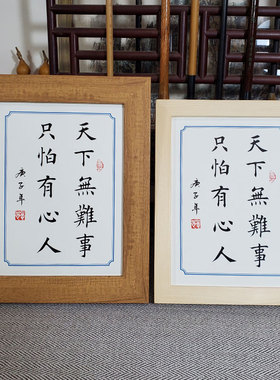 天下無難事
只怕有心人
庚子年
天下無難事
只怕有心人
庚子年